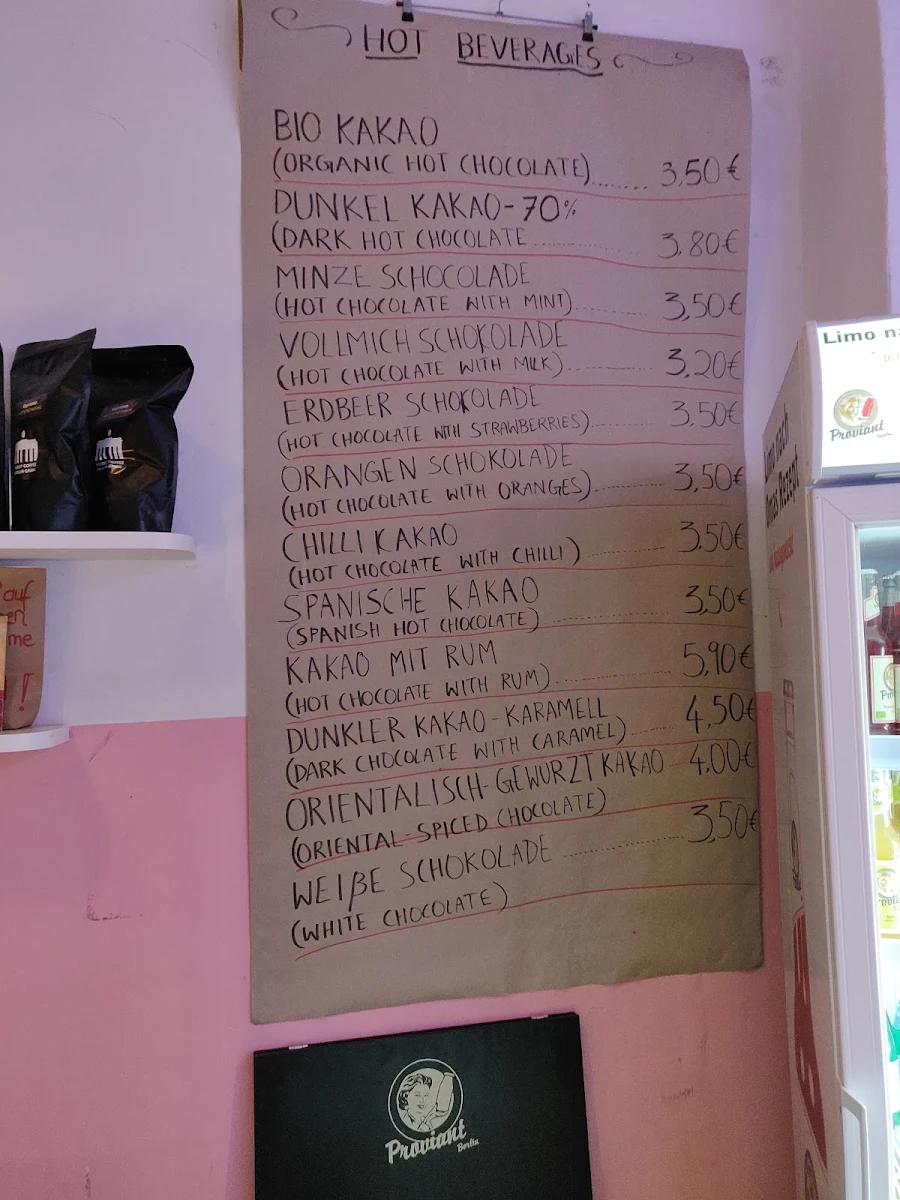 HOT BEVERAGES
BIO KAKAO
(ORGANIC HOT CHOCOLATE)........ 3.50€
DUNKEL KAKAO - 70%
(DARK HOT CHOCOLATE ............ 3.80€
MINZE SCHOCOLADE
(HOT CHOCOLATE WITH MINT)............ 3,50€
VOLLMICH SCHOKOLADE
(HOT CHOCOLATE WITH MILK)............ 3,20€
ERDBEER SCHOKOLADE
(HOT CHOCOLATE WITH STRAWBERRIES)............ 3.50€
ORANGEN SCHOKOLADE
(HOT CHOCOLATE WITH ORANGES)............ 3,50€
CHILLI KAKAO
(HOT CHOCOLATE WITH CHILLI) ............ 3.50€
SPANISCHE KAKAO
(SPANISH HOT CHOCOLATE) ............ 3,50€
KAKAO MIT RUM
(HOT CHOCOLATE WITH RUM)............ 5,90€
DUNKLER KAKAO - KARAMELL
(DARK CHOCOLATE WITH CARAMEL)............ 4,50€
ORIENTALISCH-GEWURZT KAKAO 4.00€
(ORIENTAL-SPICED CHOCOLATE)
WEIßE SCHOKOLADE ............ 3,50€
(WHITE CHOCOLATE)
Proviant
Berlin
Limo
Proviant
Berlin
Limo nach
Omas Rezept
auf
en
me
!